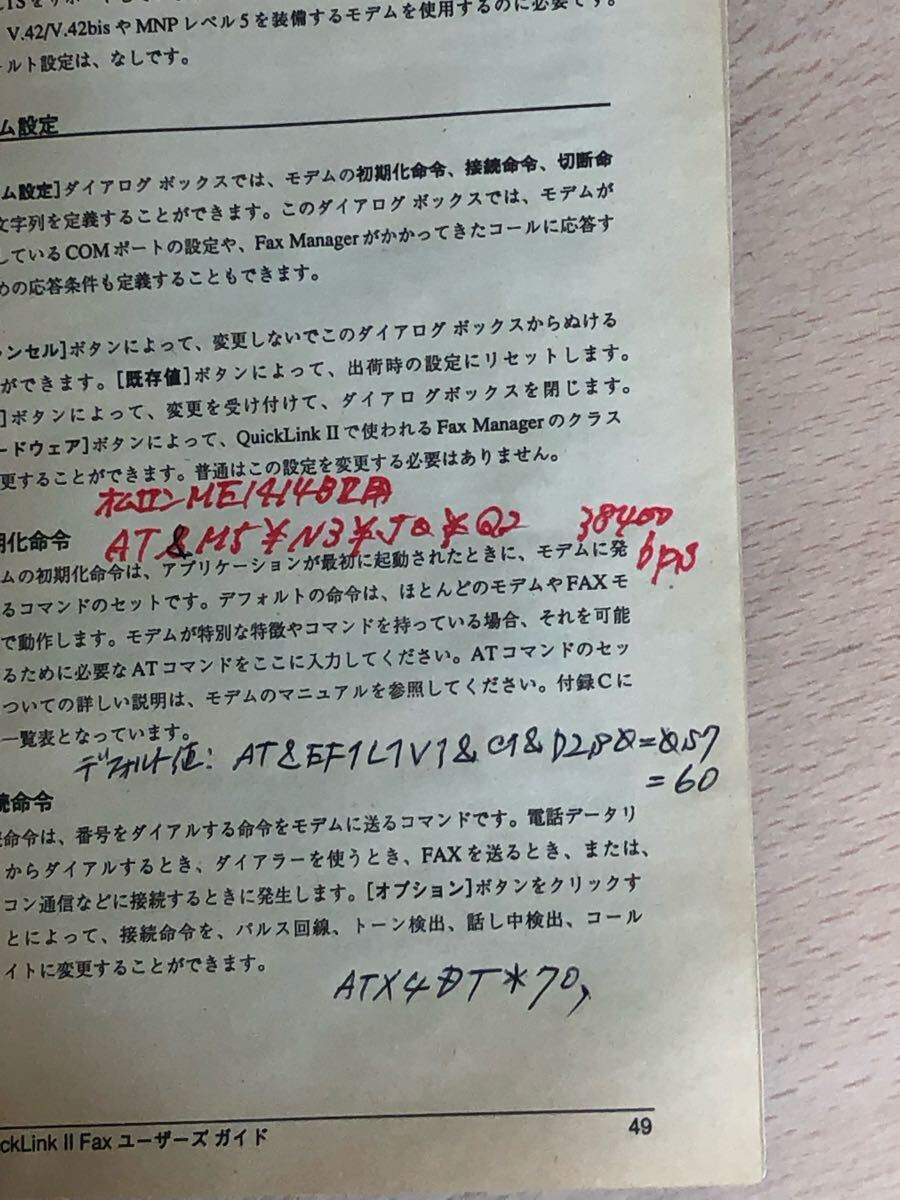 TSをサポートして
V.42/V.42bisやMNPレベル5を装備するモデムを使用するのに必要です。
ルト設定は、なしです。
ム設定
ム設定]ダイアログ ボックスでは、モデムの初期化命令、接続命令、切断命
文字列を定義することができます。このダイアログ ボックスでは、モデムが
しているCOMポートの設定や、Fax Managerがかかってきたコールに応答す
めの応答条件も定義することもできます。
ャンセル]ボタンによって、変更しないでこのダイアログ ボックスからぬける
ができます。[既存値]ボタンによって、出荷時の設定にリセットします。
]ボタンによって、変更を受け付けて、ダイアログボックスを閉じます。
ードウェア]ボタンによって、QuickLink IIで使われるFax Managerのクラス
更することができます。普通はこの設定を変更する必要はありません。
オムロンME1414BⅡ用
AT&M5¥N3¥J0¥Q2 38400
bps
期化命令
ムの初期化命令は、アプリケーションが最初に起動されたときに、モデムに発
るコマンドのセットです。デフォルトの命令は、ほとんどのモデムやFAXモ
で動作します。モデムが特別な特徴やコマンドを持っている場合、それを可能
るために必要なATコマンドをここに入力してください。ATコマンドのセッ
ついての詳しい説明は、モデムのマニュアルを参照してください。付録Cに
一覧表となっています。
デフォルト値: AT&EF1L1V1&C1&D2S0=0S7
=60
続命令
命令は、番号をダイアルする命令をモデムに送るコマンドです。電話データリ
からダイアルするとき、ダイアラーを使うとき、FAXを送るとき、または、
コン通信などに接続するときに発生します。[オプション]ボタンをクリックす
とによって、接続命令を、パルス回線、トーン検出、話し中検出、コール
イトに変更することができます。
ATX4DT*70,
ickLink II Fax ユーザーズ ガイド 49